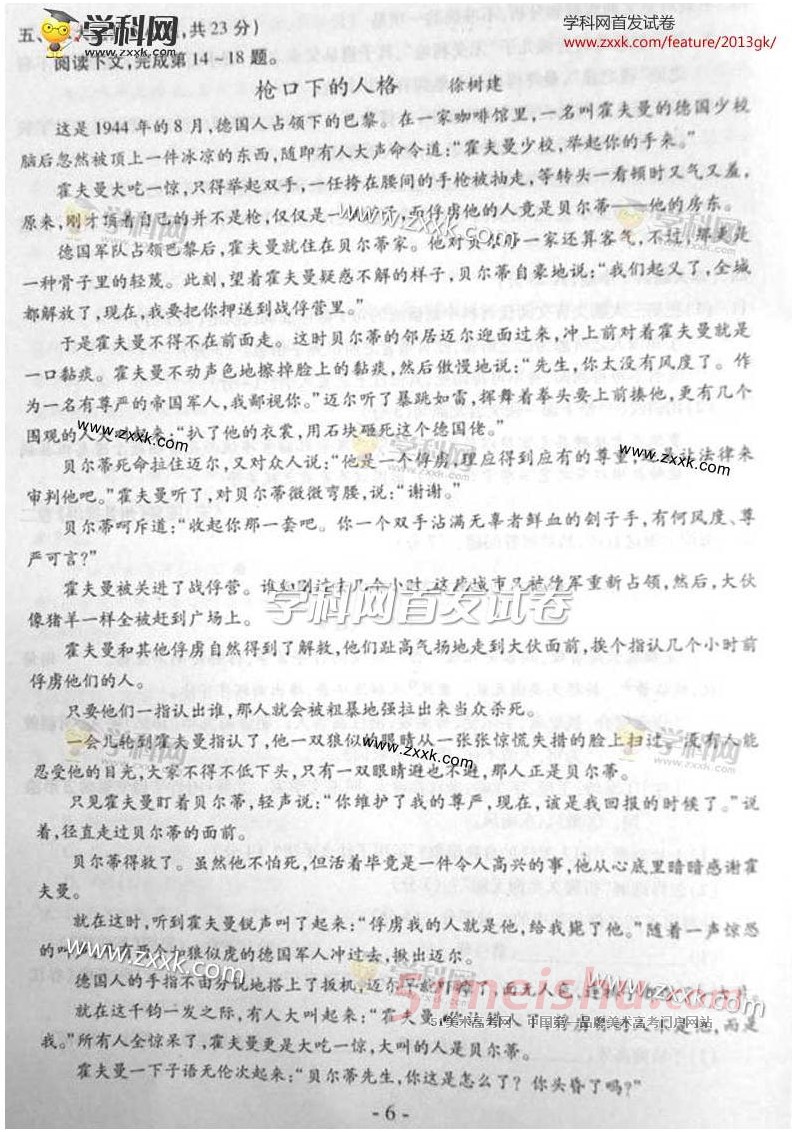 学科网首发试卷
www.zxxk.com/feature/2013gk/
学科网
五、
,共23分)
阅读下文,完成第14~18题。
枪口下的人格 徐树建
这是1944年的8月,德国人占领下的巴黎。在一家咖啡馆里,一名叫霍夫曼的德国少校
脑后忽然被顶上一件冰凉的东西,随即有人大声命令道:“霍夫曼少校,举起你的手来。”
霍夫曼大吃一惊,只得举起双手,一任挎在腰间的手枪被抽走,等转头一看顿时又气又羞,
原来,刚才顶着自己的并不是枪,仅仅是一 而俘虏他的人竟是贝尔蒂——他的房东。
德国军队占领巴黎后,霍夫曼就住在贝尔蒂家。他对贝尔蒂一家还算客气,不过,那是
一种骨子里的轻蔑。此刻,望着霍夫曼疑惑不解的样子,贝尔蒂自豪地说:“我们起义了,全城
都解放了,现在,我要把你押送到战俘营里。”
于是霍夫曼不得不在前面走。这时贝尔蒂的邻居迈尔迎面过来,冲上前对着霍夫曼就是
一口黏痰。霍夫曼不动声色地擦掉脸上的黏痰,然后傲慢地说:“先生,你太没有风度了。作
为一名有尊严的帝国军人,我鄙视你。”迈尔听了暴跳如雷,挥舞着拳头要上前揍他,更有几个
围观的人大叫起来:“扒了他的衣裳,用石块砸死这个德国佬。”
贝尔蒂死命拉住迈尔,又对众人说:“他是一个俘虏,理应得到应有的尊重, 让法律来
审判他吧。”霍夫曼听了,对贝尔蒂微微弯腰,说:“谢谢。”
贝尔蒂呵斥道:“收起你那一套吧。你一个双手沾满无辜者鲜血的刽子手,有何风度、尊
严可言?”
霍夫曼被关进了战俘营。谁知刚过去几个小时,这座城市又被德军重新占领,然后,大伙
像猪羊一样全被赶到广场上。
霍夫曼和其他俘虏自然得到了解救,他们趾高气扬地走到大伙面前,挨个指认几个小时前
俘虏他们的人。
只要他们一指认出谁,那人就会被粗暴地强拉出来当众杀死。
一会儿轮到霍夫曼指认了,他一双狼似的眼睛从一张张惊慌失措的脸上扫过,没有人能
忍受他的目光,大家不得不低下头,只有一双眼睛避也不避,那人正是贝尔蒂。
只见霍夫曼盯着贝尔蒂,轻声说:“你维护了我的尊严,现在,该是我回报的时候了。”说
着,径直走过贝尔蒂的面前。
贝尔蒂得救了。虽然他不怕死,但活着毕竟是一件令人高兴的事,他从心底里暗暗感谢霍
夫曼。
就在这时,听到霍夫曼锐声叫了起来:“俘虏我的人就是他,给我毙了他。”随着一声惊恐
的叫 有两个如狼似虎的德国军人冲过去,揪出迈尔。
德国人的手指不由分说地搭上了扳机,迈尔 面无人色,
就在这千钧一发之际,有人大叫起来:“霍夫曼, 是他,而是
我。”所有人全惊呆了,霍夫曼更是大吃一惊,大叫的人是贝尔蒂。
霍夫曼一下子语无伦次起来:“贝尔蒂先生,你这是怎么了?你头昏了吗?”
- 6 -
学科网
www.zxxk.com
学科网
www.zxxk.com
学科网
www.zxxk.com
学科网首发试卷
学科网
www.zxxk.com
学科网
www.zxxk.com
学科网
www.zxxk.com
51meishu.com
51美术高考网 中国第一品牌美术高考门户网站